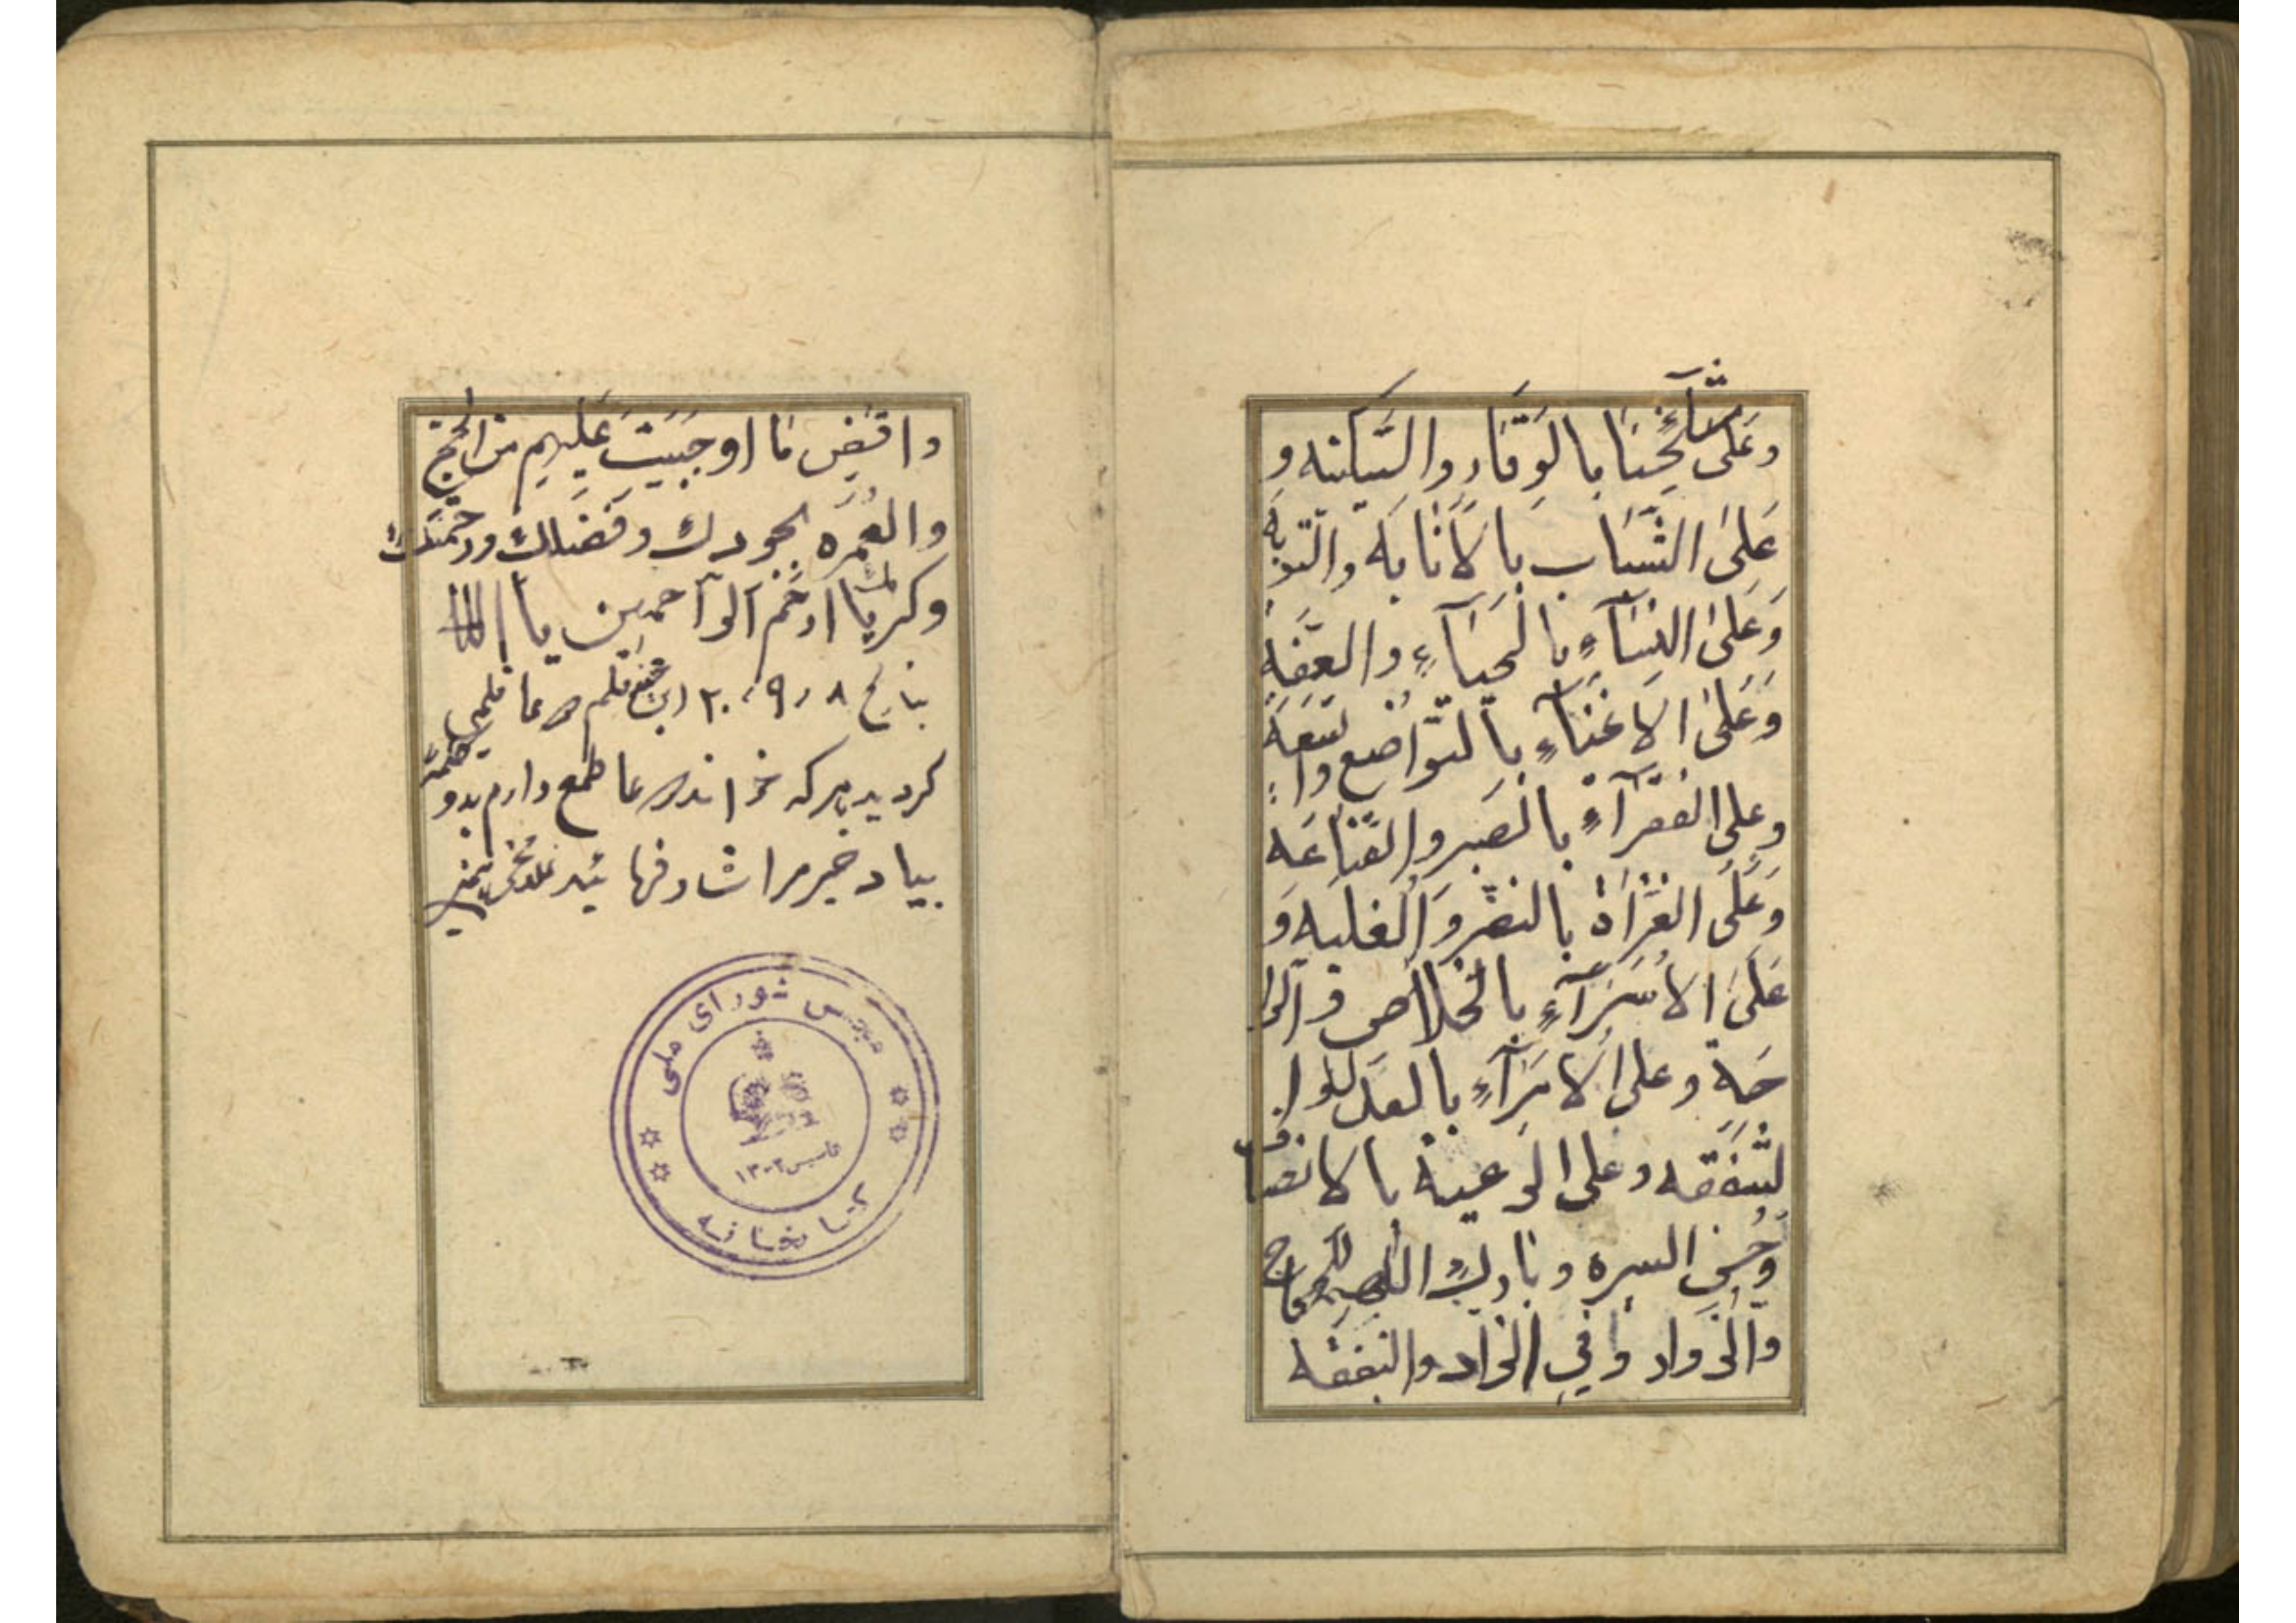 وعَلى مشآئخِنَا بالوَقَار والسَّكينه و
عَلىَ الشَّبَاب بالاَنَابَه والتّوبَه
وَعَلىَ النِسَآءِ بالحَيَآءِ والعِفَه
وَعَلىَ الاغنَيآءِ بالتوّاضع والسَعَهَ
وعلى الفقرَآءِ بالصَبر والقَنَاعَه
وَعَلَى الغُزاة بالنصَر وَالغلبه وَ
عَلىَ الاُسَرَآءِ بالخَلاص و الرا
حَةِ وعلى الاُمرَآءِ بالعَدل وا
لشَفقَه وعلى الرعية بالانصاف
وَحُسنِ السيره وبَارِك للحجاج
والزوار في الزاد والنفقه
واقضِ مَا اوجَبَتَ عَليهِم مِن الحَجّ
والعُمرَه بجودك وفَضلك ورحمَتك
وكرمك يا ارحَم الرآحمين يا الله
بتاريخ ٢٠٠٩٫٨ اين قلم
كرديد هركه خواند دعا طمع دارم بدو
بياد خير مرا شاد
مجلس شوراى ملى
تاسيس ١٣٠٢
كتابخانه